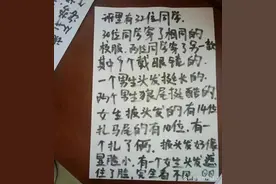 班里有32位同学。
30位同学穿了相同的
校服。两位同学穿了另一款
其中9个戴眼镜的。
一个男生头发挺长的。
两个男生狼尾挺酷的。
女生披头发的有14位
扎马尾的有10位。有
一个扎了俩。披头发好像
显脸小。有一个女生头发遮
住了脸，完全看不见